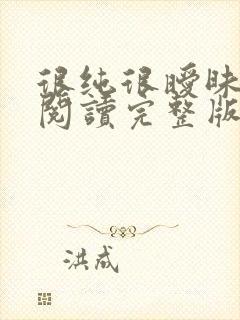 很纯很曖昧
閱讀完整版
洪成